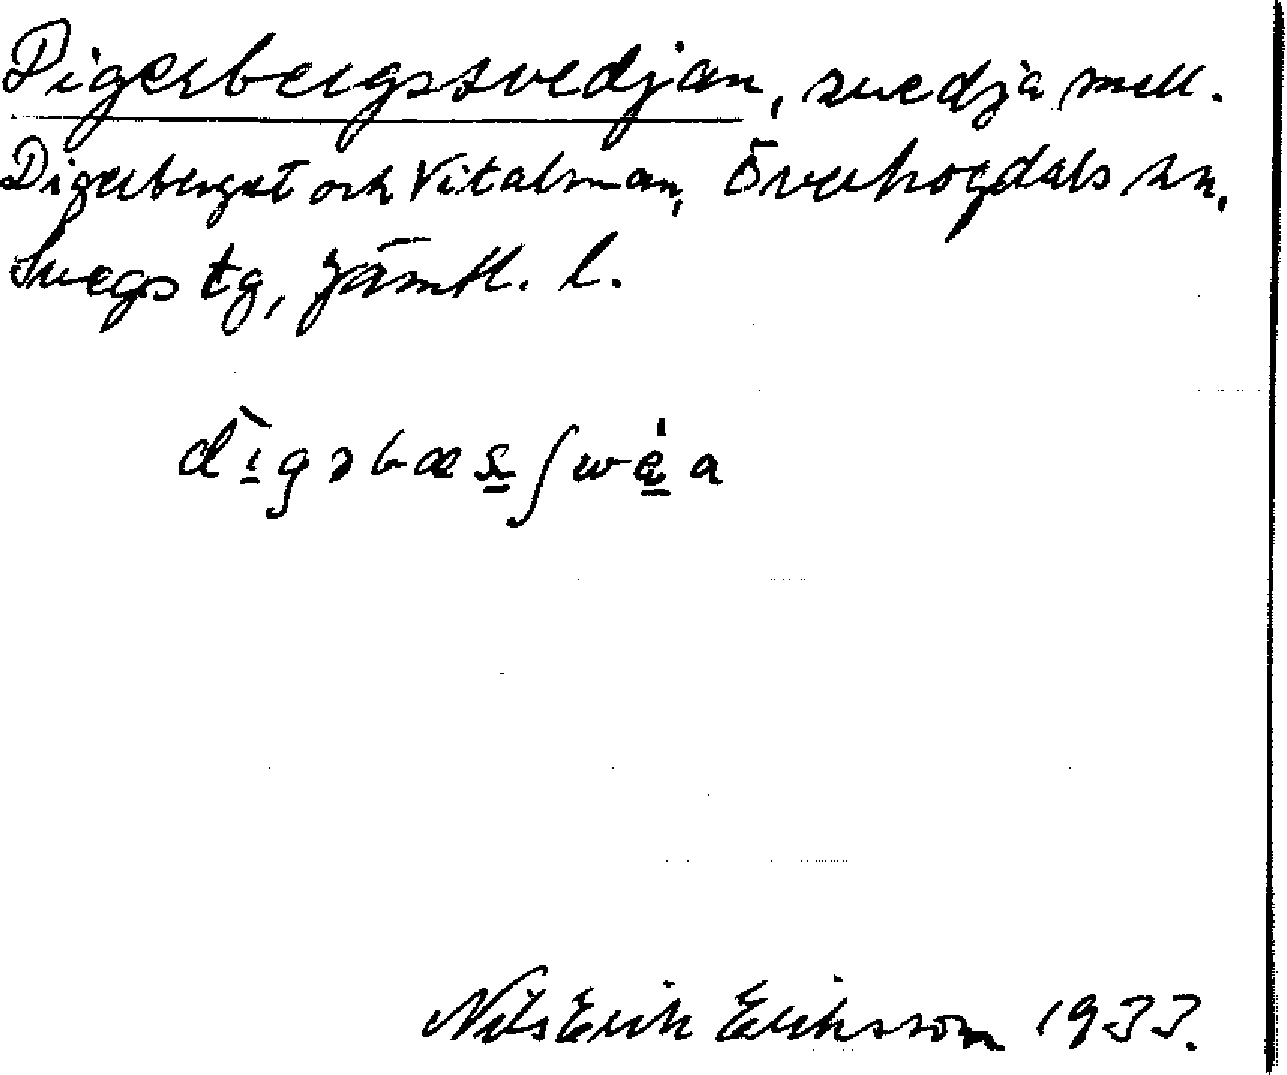 Digerbergssvedjan, svedja mell.
Digerberget och Vitalman, Överhogdals sn,
Svegs tg, Jämtl. l.
Nils Erik Eriksson 1933.